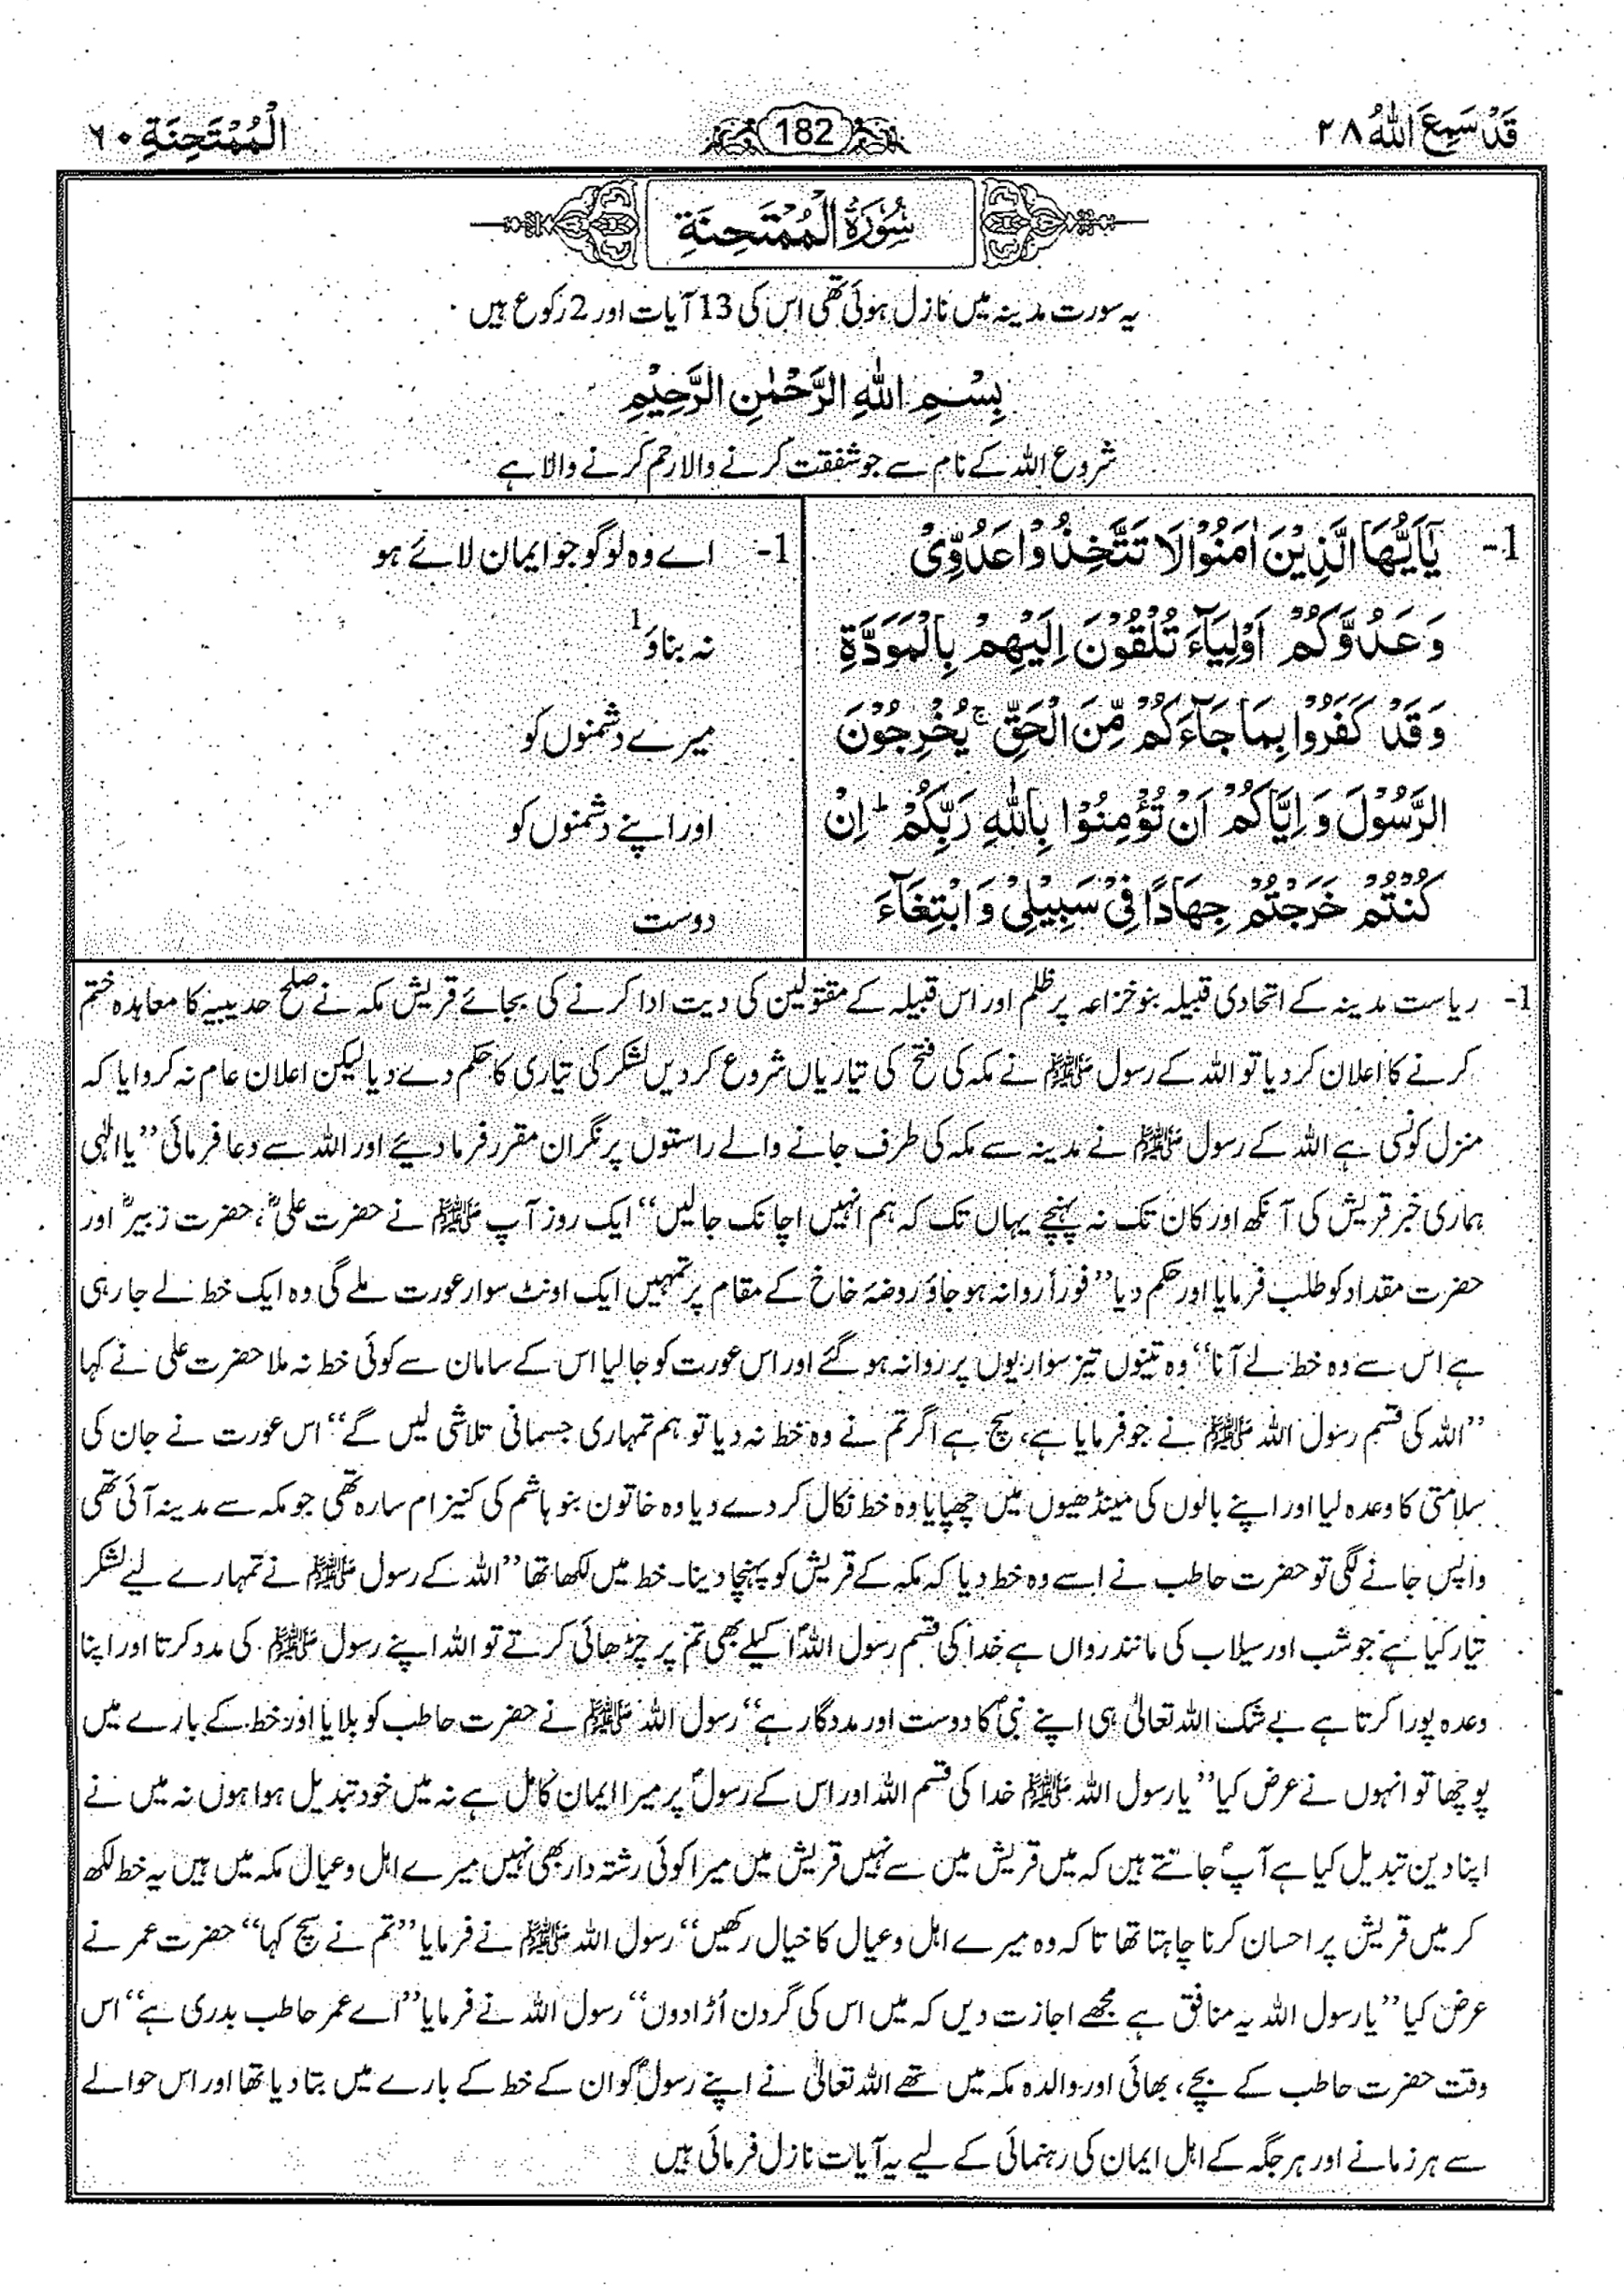 قَدْ سَمِعَ اللّٰهُ ٢٨
182
الْمُمْتَحِنَةِ ٦٠
سُوْرَةُ الْمُمْتَحِنَةِ
یہ سورت مدینہ میں نازل ہوئی تھی اس کی 13 آیات اور 2 رکوع ہیں
بِسْمِ اللّٰهِ الرَّحْمٰنِ الرَّحِيْمِ
شروع اللہ کے نام سے جو شفقت کرنے والا رحم کرنے والا ہے
1- يٰۤاَيُّهَا الَّذِيْنَ اٰمَنُوْا لَا تَتَّخِذُوْا عَدُوِّىْ
وَعَدُوَّكُمْ اَوْلِيَآءَ تُلْقُوْنَ اِلَيْهِمْ بِالْمَوَدَّةِ
وَقَدْ كَفَرُوْا بِمَا جَآءَكُمْ مِّنَ الْحَقِّ ۚ يُخْرِجُوْنَ
الرَّسُوْلَ وَاِيَّاكُمْ اَنْ تُؤْمِنُوْا بِاللّٰهِ رَبِّكُمْ ؕ اِنْ
كُنْتُمْ خَرَجْتُمْ جِهَادًا فِىْ سَبِيْلِىْ وَابْتِغَآءَ
1- اے وہ لوگو جو ایمان لائے ہو
نہ بناؤ 1
میرے دشمنوں کو
اور اپنے دشمنوں کو
دوست
1- ریاست مدینہ کے اتحادی قبیلہ بنو خزاعہ پر ظلم اور اس قبیلہ کے مقتولین کی دیت ادا کرنے کی بجائے قریش مکہ نے صلح حدیبیہ کا معاہدہ ختم
کرنے کا اعلان کر دیا تو اللہ کے رسول ﷺ نے مکہ کی فتح کی تیاریاں شروع کر دیں لشکر کی تیاری کا حکم دے دیا لیکن اعلان عام نہ کروایا کہ
منزل کونسی ہے اللہ کے رسول ﷺ نے مدینہ سے مکہ کی طرف جانے والے راستوں پر نگران مقرر فرما دیئے اور اللہ سے دعا فرمائی ’’یا الٰہی
ہماری خبر قریش کی آنکھ اور کان تک نہ پہنچے یہاں تک کہ ہم انہیں اچانک جا لیں‘‘ ایک روز آپ ﷺ نے حضرت علیؓ، حضرت زبیرؓ اور
حضرت مقداد کو طلب فرمایا اور حکم دیا ’’فوراً روانہ ہو جاؤ روضۂ خاخ کے مقام پر تمہیں ایک اونٹ سوار عورت ملے گی وہ ایک خط لے جا رہی
ہے اس سے وہ خط لے آنا‘‘ وہ تینوں تیز سواریوں پر روانہ ہو گئے اور اس عورت کو جا لیا اس کے سامان سے کوئی خط نہ ملا حضرت علی نے کہا
’’اللہ کی قسم رسول اللہ ﷺ نے جو فرمایا ہے، سچ ہے اگر تم نے وہ خط نہ دیا تو ہم تمہاری جسمانی تلاشی لیں گے‘‘ اس عورت نے جان کی
سلامتی کا وعدہ لیا اور اپنے بالوں کی مینڈھیوں میں چھپایا وہ خط نکال کر دے دیا وہ خاتون بنو ہاشم کی کنیز ام سارہ تھی جو مکہ سے مدینہ آئی تھی
واپس جانے لگی تو حضرت حاطب نے اسے وہ خط دیا کہ مکہ کے قریش کو پہنچا دینا۔ خط میں لکھا تھا ’’اللہ کے رسول ﷺ نے تمہارے لیے لشکر
تیار کیا ہے جو شب اور سیلاب کی مانند رواں ہے خدا کی قسم رسول اللہؐ اکیلے بھی تم پر چڑھائی کرتے تو اللہ اپنے رسول ﷺ کی مدد کرتا اور اپنا
وعدہ پورا کرتا ہے بے شک اللہ تعالیٰ ہی اپنے نبیؐ کا دوست اور مددگار ہے‘‘ رسول اللہ ﷺ نے حضرت حاطب کو بلایا اور خط کے بارے میں
پوچھا تو انہوں نے عرض کیا ’’یا رسول اللہ ﷺ خدا کی قسم اللہ اور اس کے رسولؐ پر میرا ایمان کامل ہے نہ میں خود تبدیل ہوا ہوں نہ میں نے
اپنا دین تبدیل کیا ہے آپؐ جانتے ہیں کہ میں قریش میں سے نہیں قریش میں میرا کوئی رشتہ دار بھی نہیں میرے اہل و عیال مکہ میں ہیں یہ خط لکھ
کر میں قریش پر احسان کرنا چاہتا تھا تا کہ وہ میرے اہل و عیال کا خیال رکھیں‘‘ رسول اللہ ﷺ نے فرمایا ’’تم نے سچ کہا‘‘ حضرت عمر نے
عرض کیا ’’یا رسول اللہ یہ منافق ہے مجھے اجازت دیں کہ میں اس کی گردن اُڑا دوں‘‘ رسول اللہ نے فرمایا ’’اے عمر حاطب بدری ہے‘‘ اس
وقت حضرت حاطب کے بچے، بھائی اور والدہ مکہ میں تھے اللہ تعالیٰ نے اپنے رسولؐ کو ان کے خط کے بارے میں بتا دیا تھا اور اس حوالے
سے ہر زمانے اور ہر جگہ کے اہل ایمان کی رہنمائی کے لیے یہ آیات نازل فرمائی ہیں